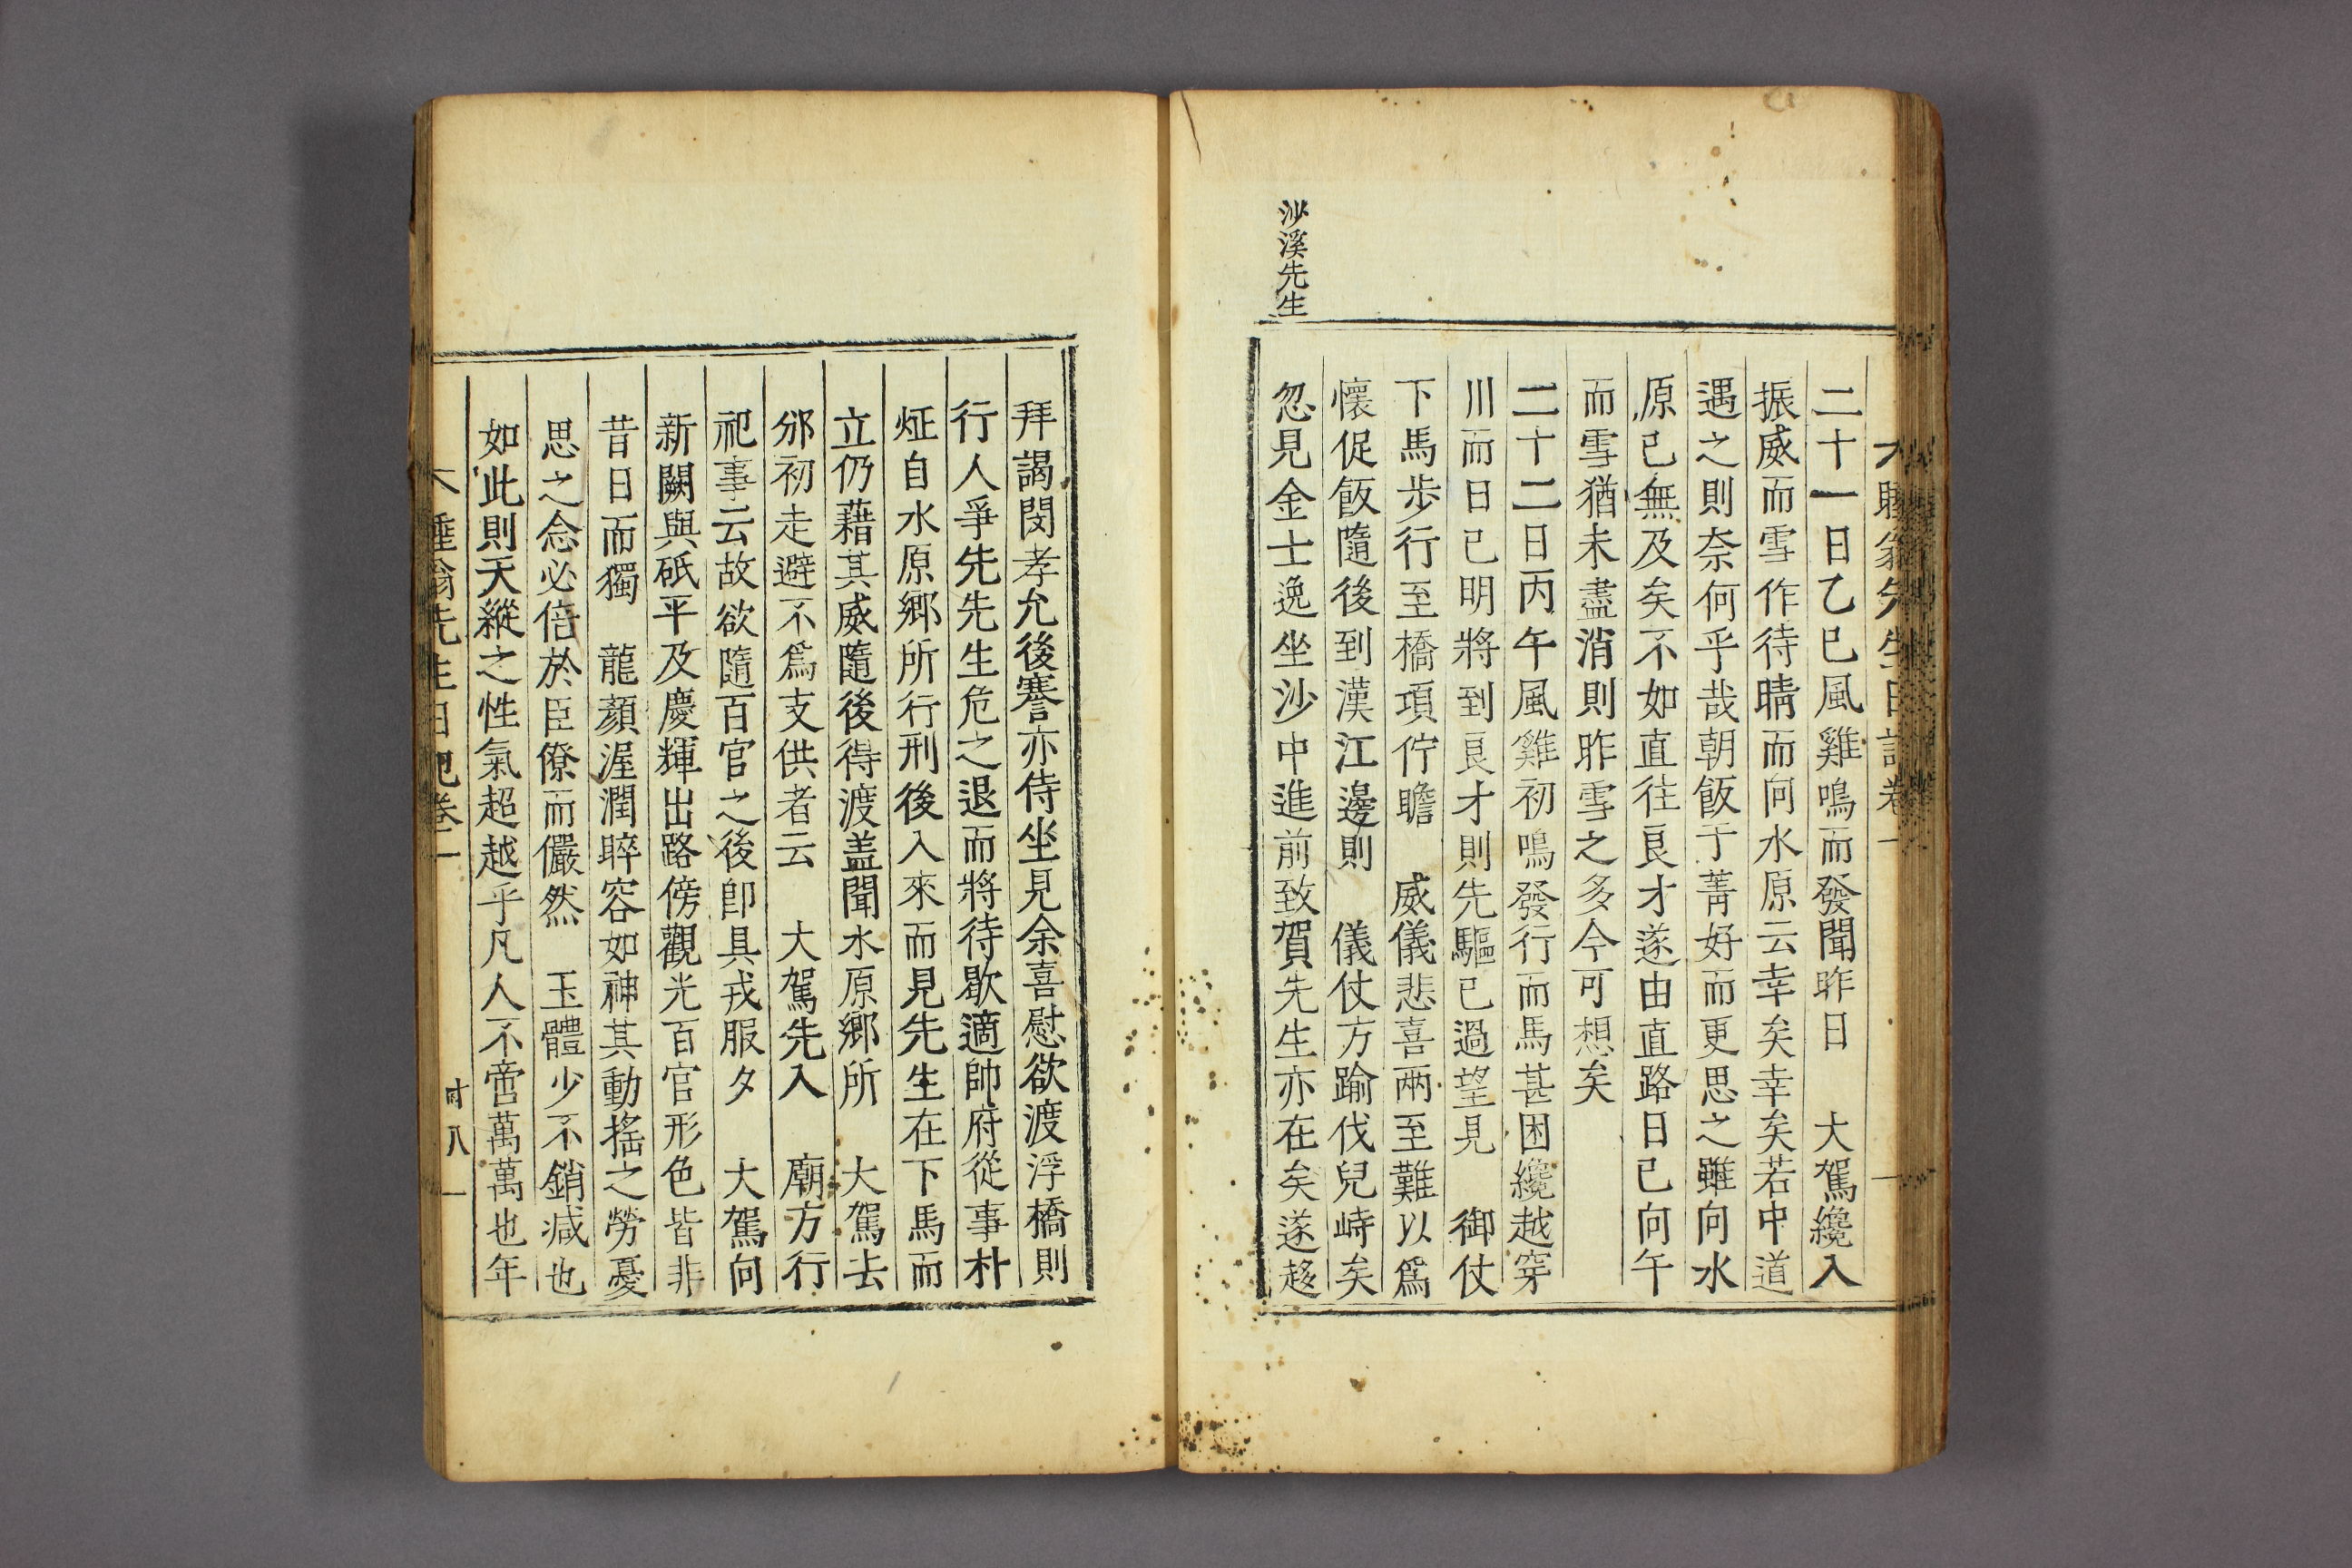 沙溪先生
二十一日乙巳風雞鳴而發聞昨日 大駕纔入
振威而雪作待晴而向水原云幸矣幸矣若中道
遇之則奈何乎哉朝飯于菁好而更思之雖向水
原已無及矣不如直往良才遂由直路日已向午
而雪猶未盡消則昨雪之多今可想矣
二十二日丙午風雞初鳴發行而馬甚困纔越穿
川而日已明將到良才則先驅已過望見 御仗
下馬步行至橋項佇瞻 威儀悲喜兩至難以爲
懷促飯隨後到漢江邊則 儀仗方踰伐兒峙矣
忽見金士逸坐沙中進前致賀先生亦在矣遂趍
拜謁閔孝允後騫亦侍坐見余喜慰欲渡浮橋則
行人爭先先生危之退而將待歇適帥府從事朴
炡自水原鄉所行刑後入來而見先生在下馬而
立仍藉其威隨後得渡盖聞水原鄉所 大駕去
邠初走避不爲支供者云 大駕先入 廟方行
祀事云故欲隨百官之後卽具戎服夕 大駕向
新闕與砥平及慶輝出路傍觀光百官形色皆非
昔日而獨 龍顏渥潤睟容如神其動搖之勞憂
思之念必倍於臣僚而儼然 玉體少不銷减也
如此則天縱之性氣超越乎凡人不啻萬萬也年